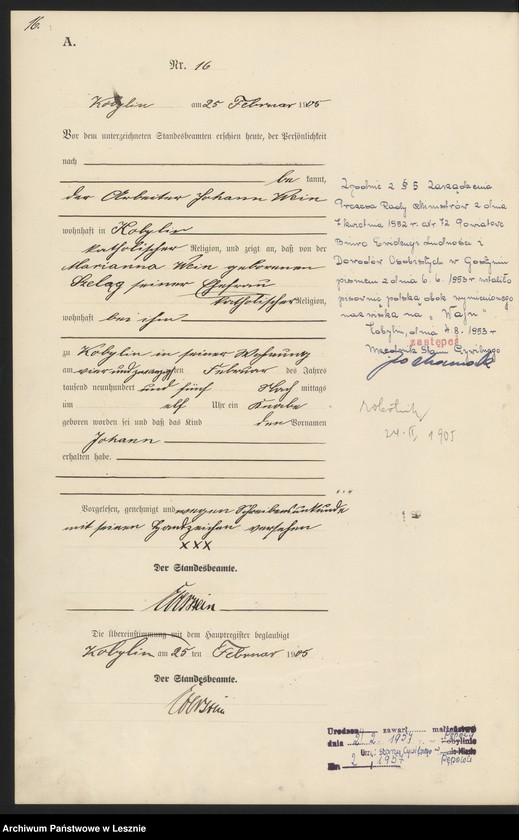 16.
A.
Nr. 16
Kobylin am 25 Februar 1905
Vor dem unterzeichneten Standesbeamten erschien heute, der Persönlichkeit
nach
be kannt,
der Arbeiter Johann Wein
wohnhaft in Kobylin
katholischer Religion, und zeigt an, daß von der
Marianna Wein geborenen
Szelag seiner Ehefrau
katholischer Religion,
wohnhaft bei ihm
zu Kobylin in seiner Wohnung
am vier und zwanzigsten Februar des Jahres
tausend neunhundert und fünf Nach mittags
um elf Uhr ein Knabe
geboren worden sei und daß das Kind den Vornamen
Johann
erhalten habe.
Vorgelesen, genehmigt und wegen Schreibensunkunde
mit seinen Handzeichen versehen
XXX
Der Standesbeamte.
Die Übereinstimmung mit dem Hauptregister beglaubigt
Kobylin am 25 ten Februar 1905
Der Standesbeamte.
Zgodnie z § 5 Zarządzenia
Prezesa Rady Ministrów z dnia
kwietnia 1952 r. Powiatowe
Biuro Ewidencji Ludności i
Dowodów Osobistych w Gostyniu
pismem z dnia 6. 6. 1953 r. ustaliło
pisownię polską obok wymienionego
nazwiska na "Wajn"
Kobylin, dnia 8. 1953 r.
zastępca
Urzędnik Stanu Cywilnego
robotnik
24. II. 1905
Urodzon zawarł małżeństwo
dnia 2. 2. 1957
Urz. Stanu Cywilnego
Pępowo
2 1957
Archiwum Państwowe w Lesznie